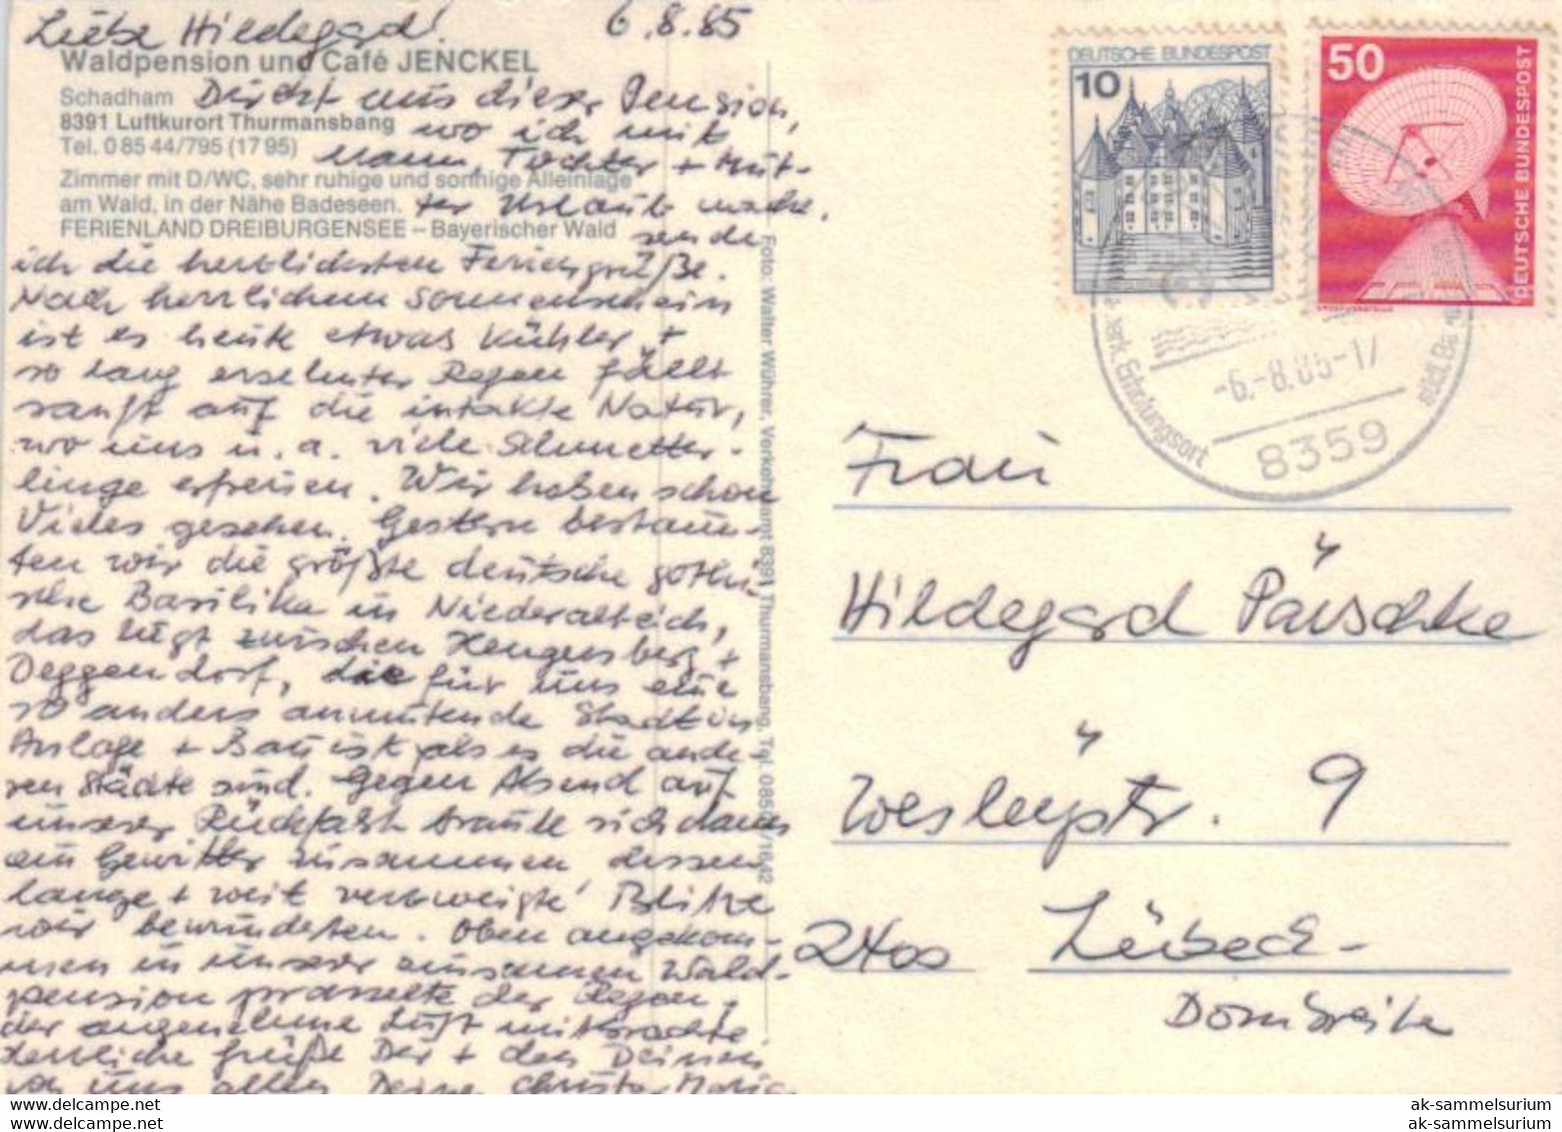 Liebe Hildegard! 6.8.85
Waldpension und Café JENCKEL
Schadham
8391 Luftkurort Thurmansbang
Tel. 0 85 44/795 (17 95)
Zimmer mit D/WC, sehr ruhige und sonnige Alleinlage
am Wald, in der Nähe Badeseen.
FERIENLAND DREIBURGENSEE – Bayerischer Wald
Direkt aus dieser Pension,
wo ich mit
Mann, Tochter + Mut-
ter Urlaub mache,
sende
ich die herzlichsten Feriengrüße.
Nach herrlichem Sonnenschein
ist es heute etwas kühler +
so lang ersehnter Regen fällt
sanft auf die intakte Natur,
wo uns u. a. viele Schmetter-
linge erfreuen. Wir haben schon
Vieles gesehen. Gestern bestaun-
ten wir die größte deutsche goti-
sche Basilika in Niederalteich,
das liegt zwischen Hengersberg +
Deggendorf, die für uns eine
so anders anmutende Stadt in
Anlage + Bau ist als es die ande-
ren Städte sind. Gegen Abend auf
unserer Rückfahrt braute sich dann
ein Gewitter zusammen dessen
lange + weit verzweigte Blitze
wir bewunderten. Oben angekom-
men in unserer einsamen Wald-
pension prasselte der Regen,
der angenehme Luft mitbrachte
Herzliche Grüße Dir + den Deinen
von uns allen Deine Christa-Maria
Foto: Walter Wührer, Verkehrsamt 8391 Thurmansbang, Tel. 0850/1642
DEUTSCHE BUNDESPOST
10
50
DEUTSCHE BUNDESPOST
erk. Erholungsort
-6.-8.85-17
8359
Frau
Hildegard Päischke
Wesleystr. 9
2400 Lübeck-
Dornbreite
ak-sammelsurium ak-sammelsurium
ak-sammelsurium ak-sammelsurium